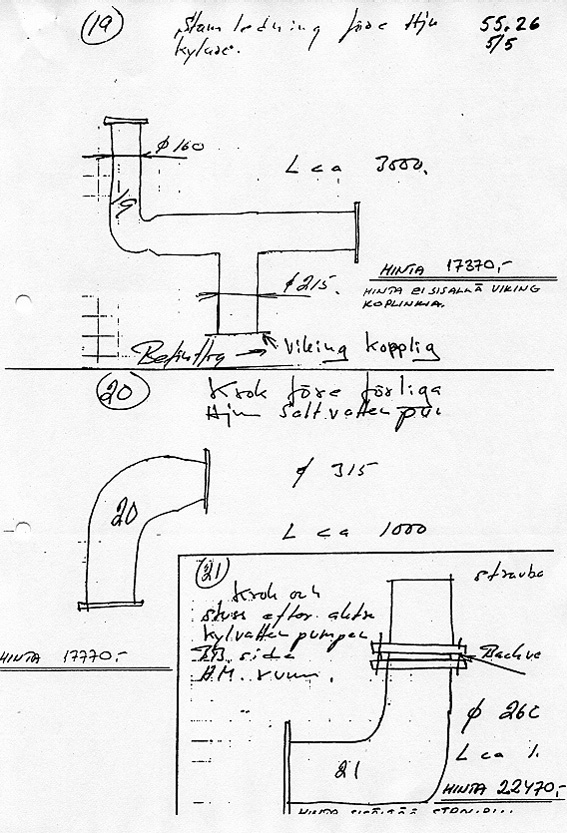 19
Stam ledning före Hju
kylare.
55.26
5/5
φ 160
L ca 3000.
19
φ 215.
HINTA 17370,-
HINTA EI SISÄLLÄ VIKING
KOPLINKIA.
Befintlig → Viking Kopplig
20
Krok före förliga
Hju saltvatten pu
20
φ 315
L ca 1000
HINTA 17770,-
21
Krok och
stuss efter aktre
kylvatten pumpen
BB. sida
H.M. rum.
φ 260
L ca 1.
21
HINTA 22470,-